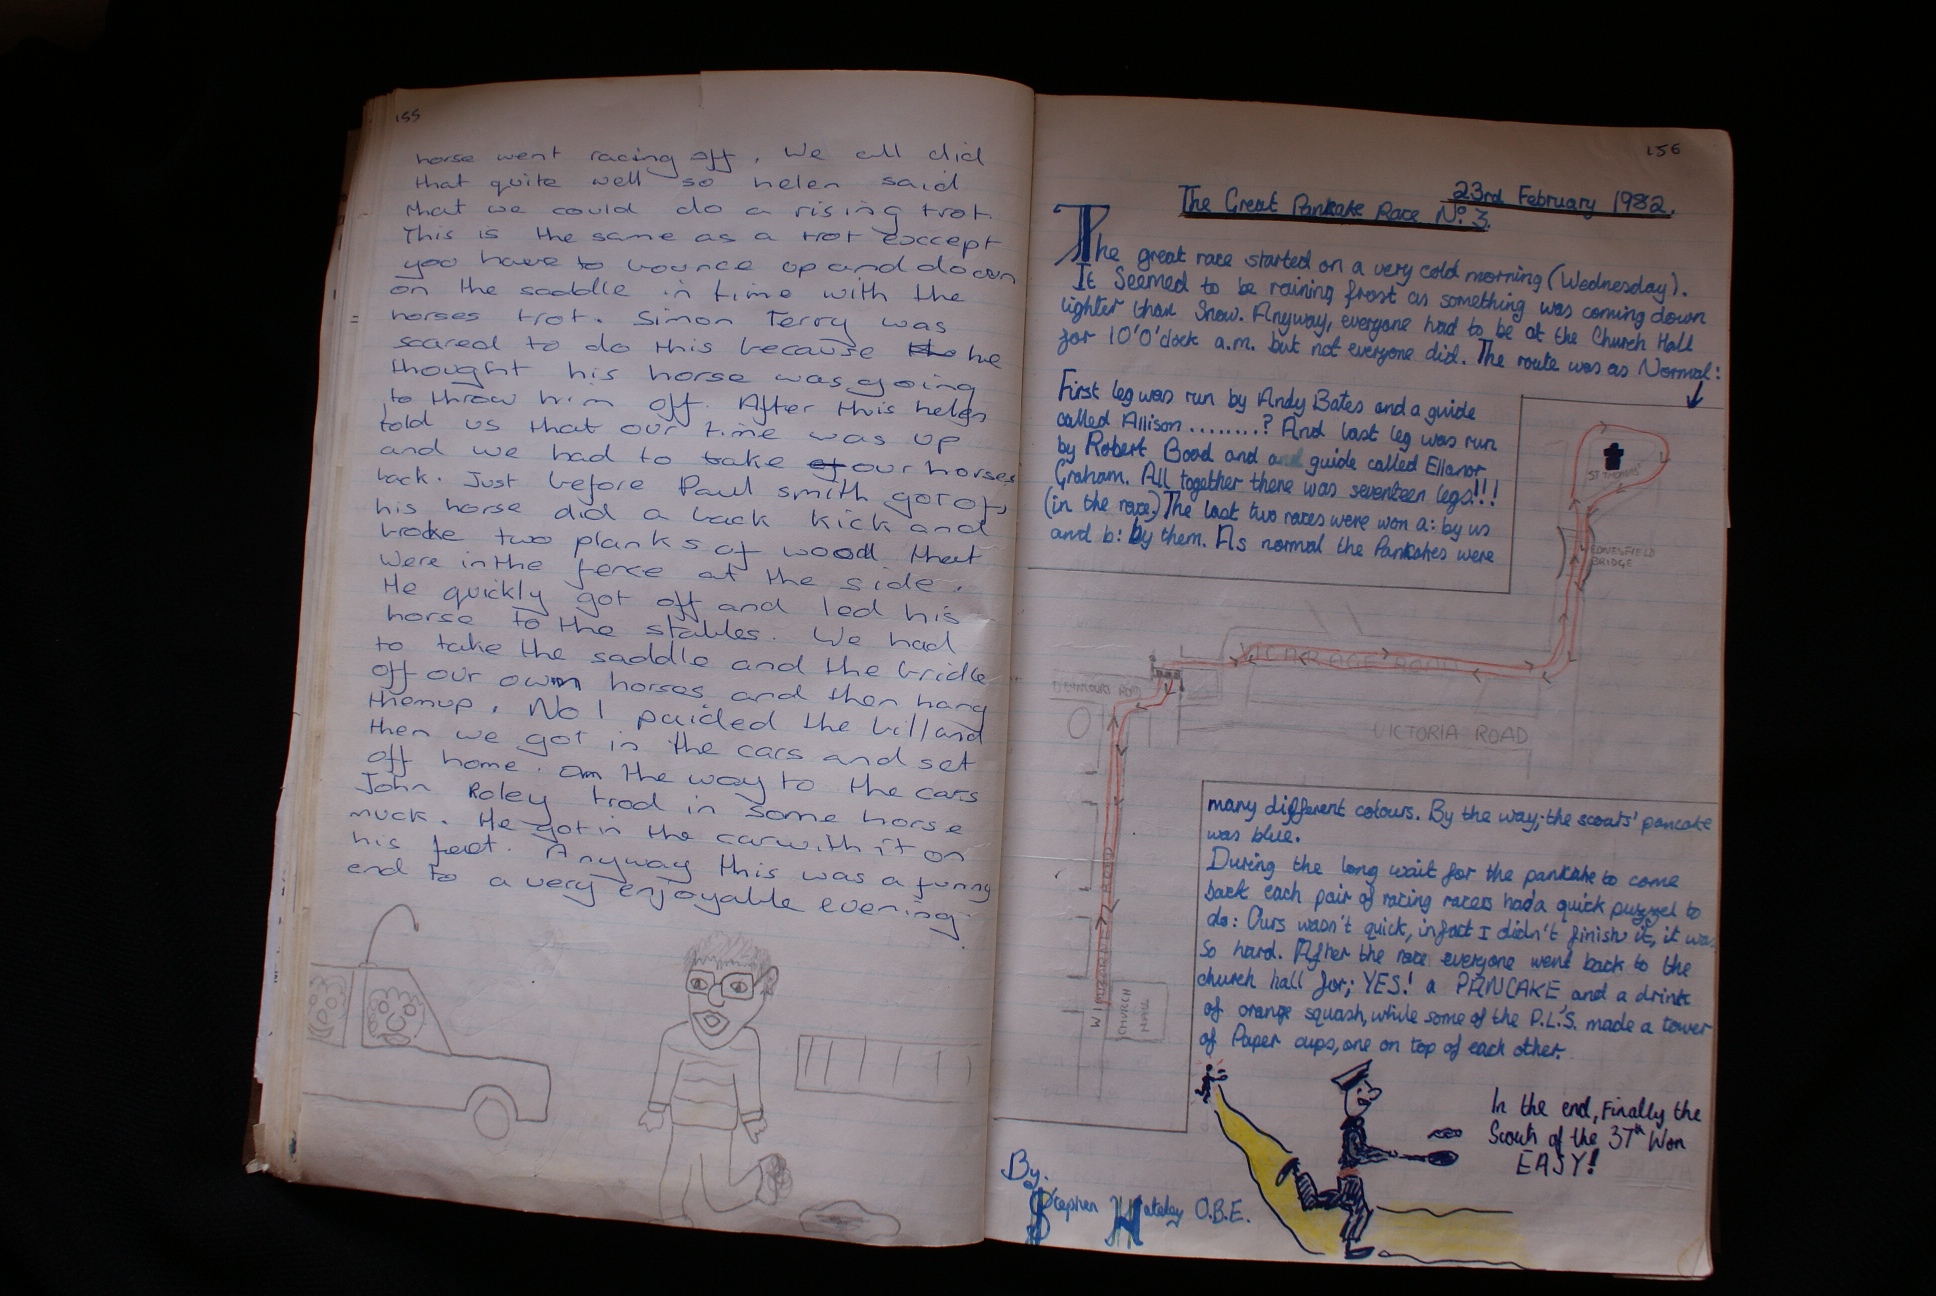 155
horse went racing off. We all did
that quite well so helen said
that we could do a rising trot.
This is the same as a trot exccept
you have to bounce up and down
on the saddle in time with the
horses trot. Simon Terry was
scared to do this because the he
thought his horse was going
to throw him off. After this helen
told us that our time was up
and we had to take of our horses
back. Just before Paul smith got of,
his horse did a back kick and
broke two planks of wood that
were in the fence at the side.
He quickly got off and led his
horse to the stables. We had
to take the saddle and the bridle
off our own horses and then hang
them up. No 1 paided the bill and
then we got in the cars and set
off home. on the way to the cars
John Roley trod in some horse
muck. He got in the car with it on
his feet. Anyway this was a funny
end to a very enjoyable evening.
156
23rd February 1982.
The Great Pankake Race No. 3.
The great race started on a very cold morning (Wednesday).
It seemed to be raining frost as something was coming down
lighter than Snow. Anyway, everyone had to be at the Church Hall
for 10'O'clock a.m. but not everyone did. The route was as Normal:
First leg was run by Andy Bates and a guide
called Allison ........? And last leg was run
by Robert Bood and and guide called Ellanor
Graham. All together there was seventeen legs!!!
(in the race). The last two races were won a: by us
and b: by them. As normal the Pankakes were
ST THOMAS'
BRIDGE
VICARAGE ROAD
VICTORIA ROAD
ROAD
CHURCH
HALL
many different colours. By the way; the scouts' pancake
was blue.
During the long wait for the pankake to come
back each pair of racing racers had a quick puzzel to
do: Ours wasn't quick, infact I didn't finish it, it was
so hard. After the race everyone went back to the
church hall for; YES! a PANCAKE and a drink
of orange squash, while some of the P.L.'S. made a tower
of Paper cups, one on top of each other.
In the end, Finally the
Scouts of the 37th Won
EASY!
By.
Stephen Hateley O.B.E.